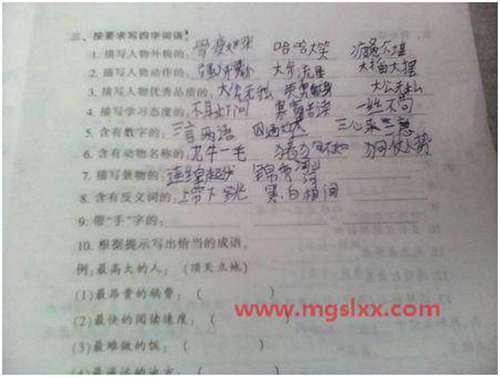 三、按要求写四字词语。
1. 描写人物外貌的: 骨瘦如柴 哈哈大笑
2. 描写人物动作的: 大步流星 大摇大摆
3. 描写人物优秀品质的: 大公无私 大公无私
4. 描写学习态度的: 不耻下问 寒窗苦读
5. 含有数字的: 三言两语 四通八达 三心二意
6. 含有动物名称的: 九牛一毛 狗仗人势
7. 描写景物的:
8. 含有反义词的: 上蹿下跳 黑白相间
9. 带“手”字的:
10. 根据提示写出恰当的成语。
例:最高大的人: (顶天立地)
(1)最昂贵的稿费: (
(2)最快的阅读速度: (
(3)最难做的饭: (
(4)最遥远的地方: (
www.mgslxx.com